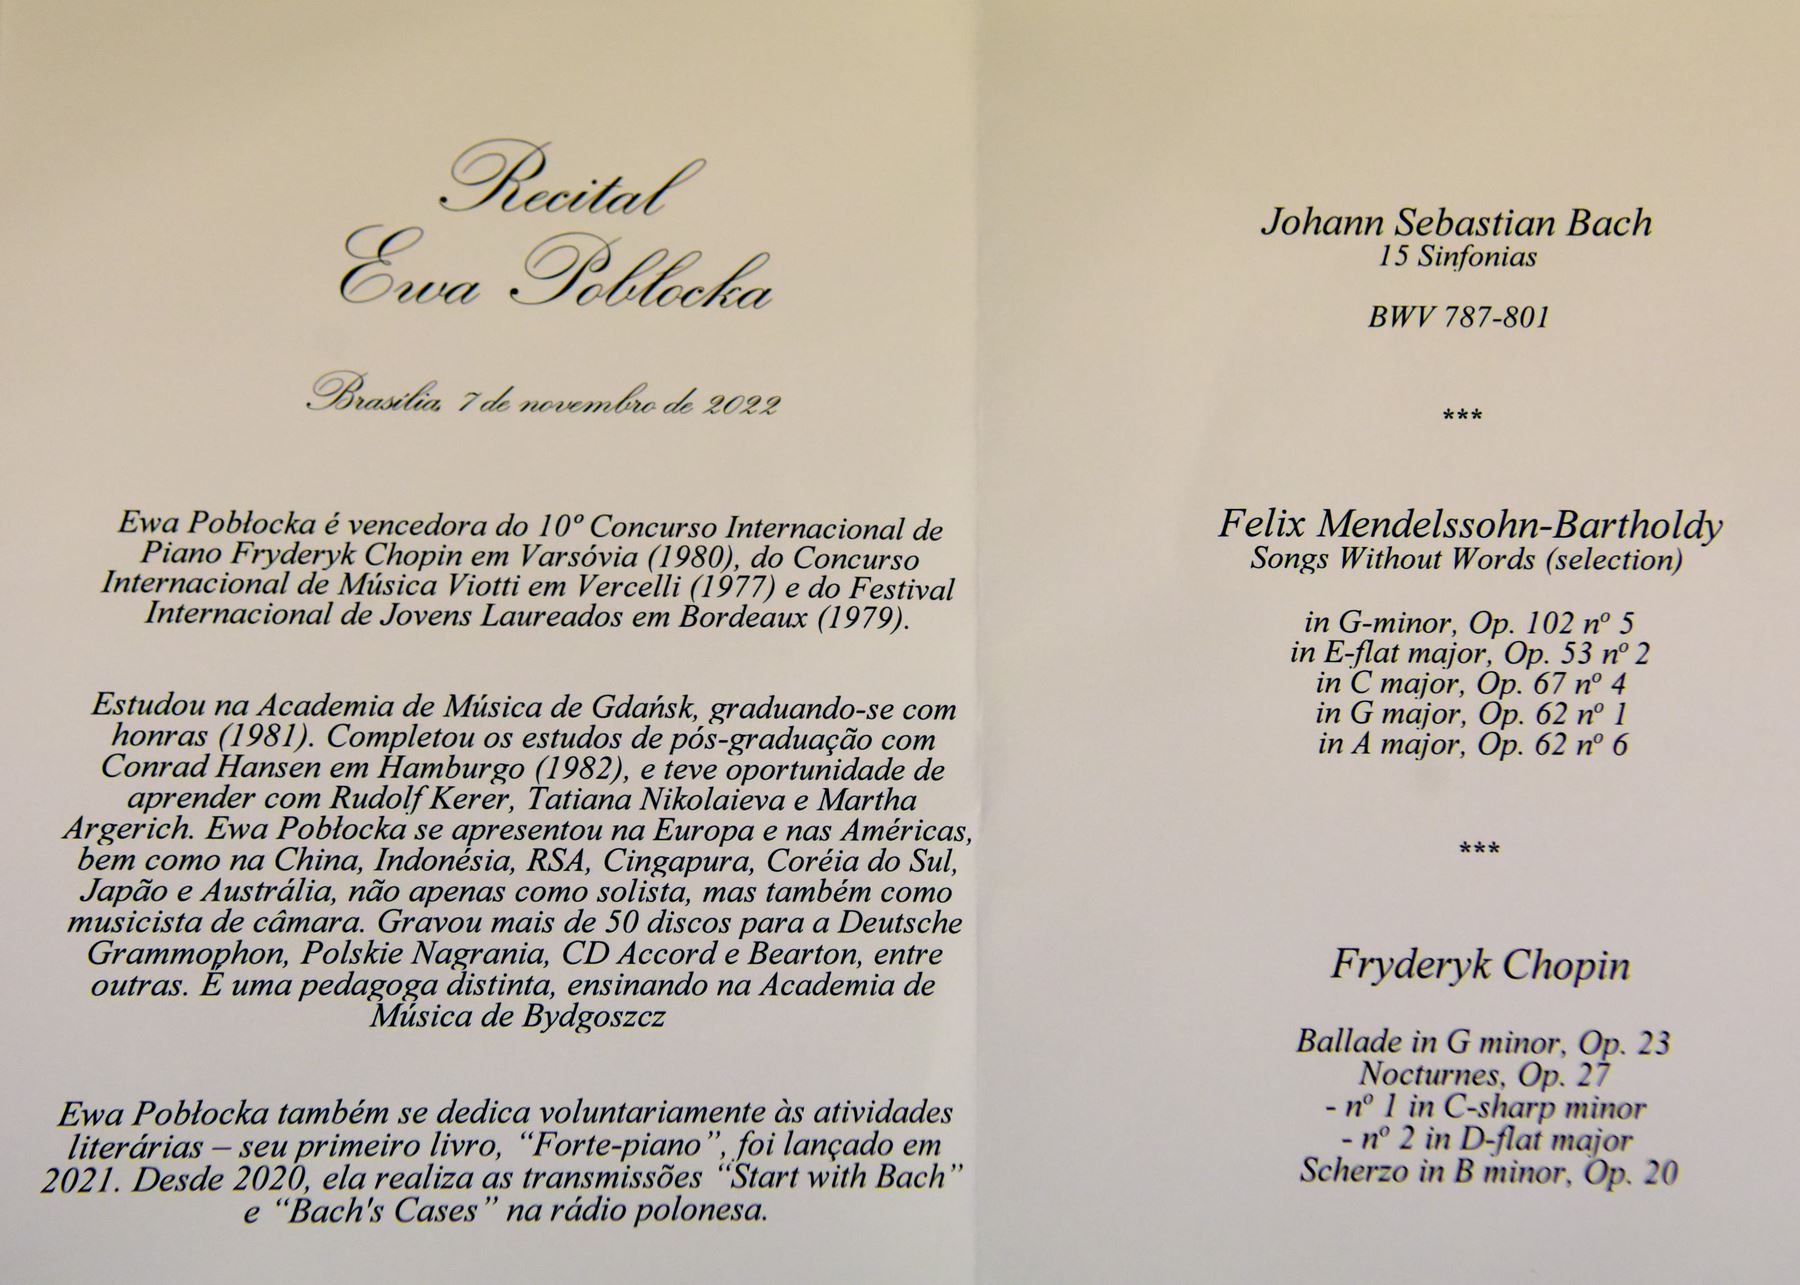 Recital
Ewa Pobłocka
Brasília, 7 de novembro de 2022
Ewa Pobłocka é vencedora do 10º Concurso Internacional de
Piano Fryderyk Chopin em Varsóvia (1980), do Concurso
Internacional de Música Viotti em Vercelli (1977) e do Festival
Internacional de Jovens Laureados em Bordeaux (1979).
Estudou na Academia de Música de Gdańsk, graduando-se com
honras (1981). Completou os estudos de pós-graduação com
Conrad Hansen em Hamburgo (1982), e teve oportunidade de
aprender com Rudolf Kerer, Tatiana Nikolaieva e Martha
Argerich. Ewa Pobłocka se apresentou na Europa e nas Américas,
bem como na China, Indonésia, RSA, Cingapura, Coréia do Sul,
Japão e Austrália, não apenas como solista, mas também como
musicista de câmara. Gravou mais de 50 discos para a Deutsche
Grammophon, Polskie Nagrania, CD Accord e Bearton, entre
outras. É uma pedagoga distinta, ensinando na Academia de
Música de Bydgoszcz
Ewa Pobłocka também se dedica voluntariamente às atividades
literárias – seu primeiro livro, “Forte-piano”, foi lançado em
2021. Desde 2020, ela realiza as transmissões “Start with Bach”
e “Bach's Cases” na rádio polonesa.
Johann Sebastian Bach
15 Sinfonias
BWV 787-801
***
Felix Mendelssohn-Bartholdy
Songs Without Words (selection)
in G-minor, Op. 102 nº 5
in E-flat major, Op. 53 nº 2
in C major, Op. 67 nº 4
in G major, Op. 62 nº 1
in A major, Op. 62 nº 6
***
Fryderyk Chopin
Ballade in G minor, Op. 23
Nocturnes, Op. 27
- nº 1 in C-sharp minor
- nº 2 in D-flat major
Scherzo in B minor, Op. 20